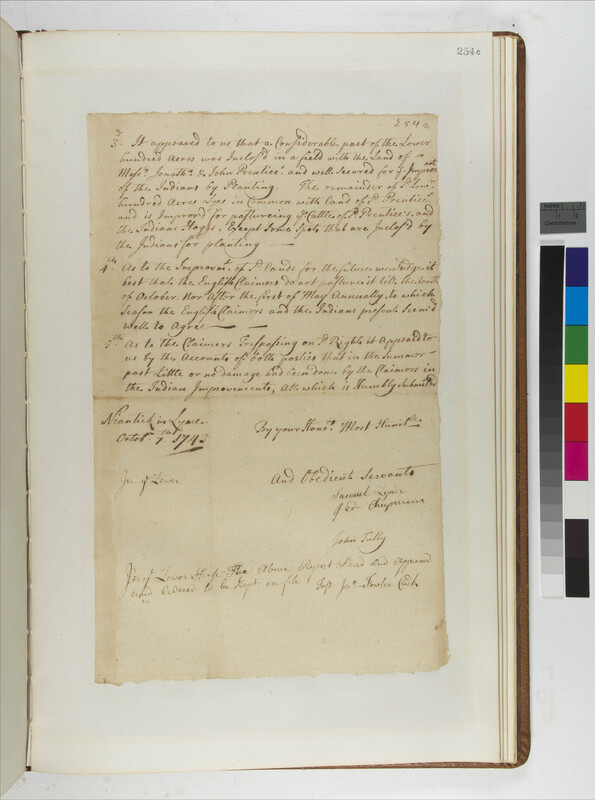 254c
254c
3d It appeared to us that a Considerable part of the Lower
hundred Acres was Inclosd in a field with the Land of
Messrs. Jonathn. & John Prentice and well Secured for ye Improvemt
of the Indians by Planting. The remainder of sd Lower
hundred Acres Lyes in Common with Land of sd Prentice
and is Improvd for pastureing ye Cattle of sd Prentice, and
the Indians Hogs, Except Some Spots that are Inclosd by
the Indians for planting —
4th As to the Improvmt. of sd Lands for the future we Judge it
best that the English Claimers do not pasture it till the tenth
of October. Nor after the first of May Annually, to which
Season the English Claimers and the Indians present Seemd
well to Agree —
5th As to the Claimers Trespassing on sd Rights it Appeard to
us by the Accounts of both parties that in the Summer
past Little or no damage had been done by the Claimers in
the Indian Improvements, All which is Humbly Submitted
Niantick in Lyme.
Octobr 7th 1743
By your Honrs. Most Humble
In ye Lower
And Obedient Servants
Samuel Lynde
Jed Chapman
John Tully
In ye Lower House The Above Report Read and Approved
and Orderd to be kept on file Test Jn Fowler Clerk